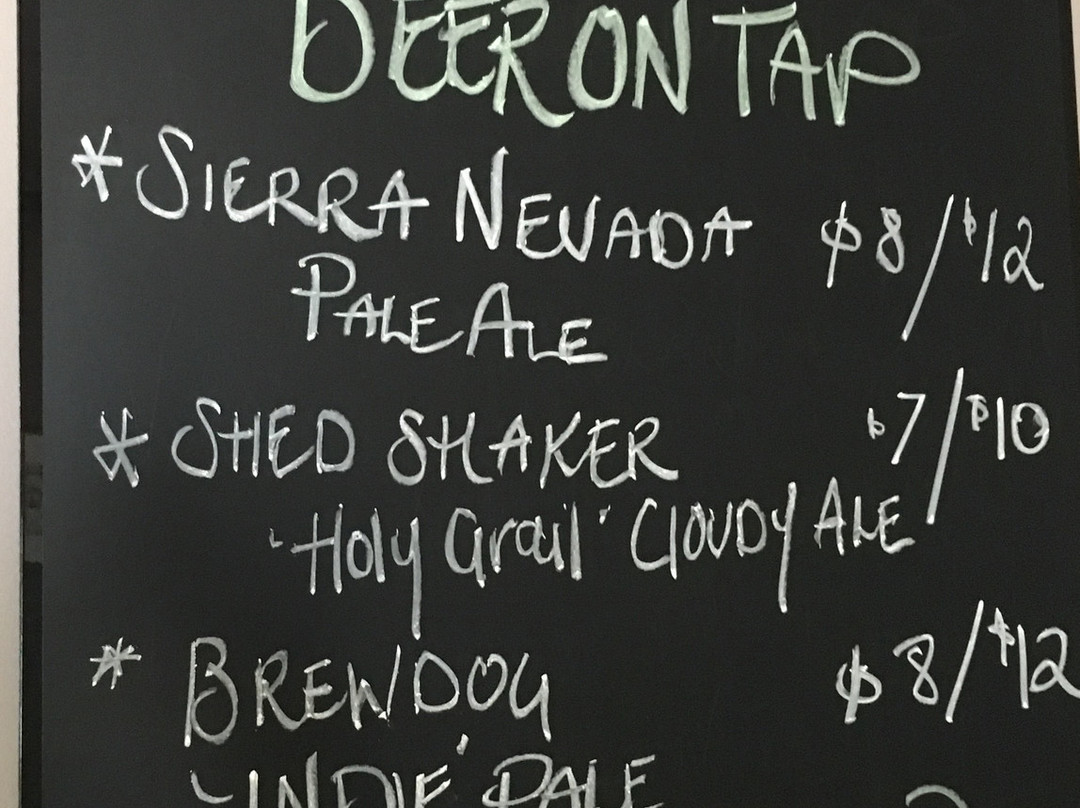 BEER ON TAP
* SIERRA NEVADA $8/$12
PALE ALE
* SHED SHAKER $7/$10
'Holy Grail' CLOUDY ALE
* BREWDOG $8/$12
'INDIE' PALE